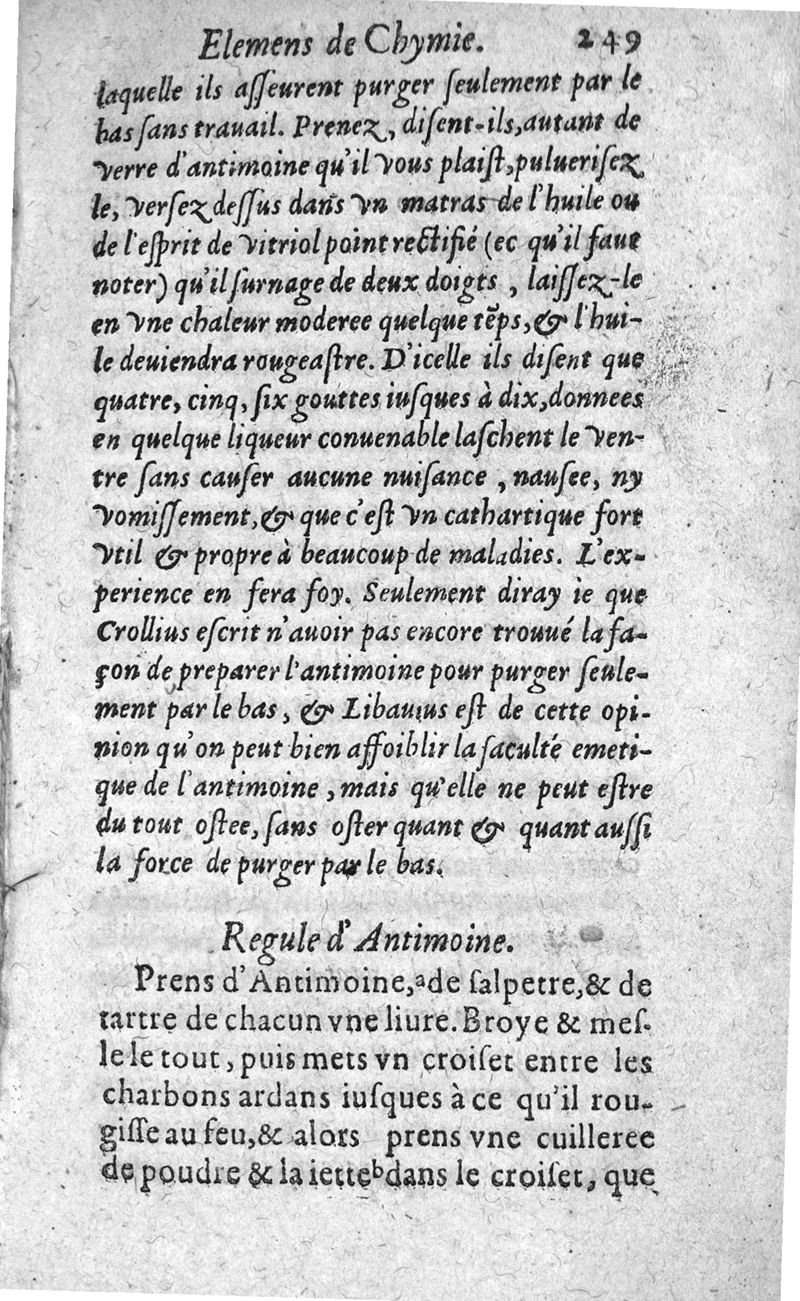 Elemens de Chymie. 249
laquelle ils aſſeurent purger ſeulement par le
bas ſans trauail. Prenez, diſent-ils, autant de
verre d'antimoine qu'il vous plaiſt, pulueriſez
le, verſez deſſus dans vn matras de l'huile ou
de l'eſprit de vitriol point rectifié (ec qu'il faut
noter) qu'il ſurnage de deux doigts, laiſſez-le
en vne chaleur moderee quelque tẽps, & l'hui-
le deuiendra rougeaſtre. D'icelle ils diſent que
quatre, cinq, ſix gouttes iuſques à dix, donnees
en quelque liqueur conuenable laſchent le ven-
tre ſans cauſer aucune nuiſance, nauſee, ny
vomiſſement, & que c'eſt vn cathartique fort
vtil & propre à beaucoup de maladies. L'ex-
perience en fera foy. Seulement diray ie que
Crollius eſcrit n'auoir pas encore trouué la fa-
çon de preparer l'antimoine pour purger ſeule-
ment par le bas, & Libauius eſt de cette opi-
nion qu'on peut bien affoiblir la faculté emeti-
que de l'antimoine, mais qu'elle ne peut eſtre
du tout oſtee, ſans oſter quant & quant auſſi
la force de purger par le bas.
Regule d'Antimoine.
Prens d'Antimoine, ᵃde ſalpetre, & de
tartre de chacun vne liure. Broye & meſ-
le le tout, puis mets vn croiſet entre les
charbons ardans iuſques à ce qu'il rou-
giſſe au feu, & alors prens vne cuilleree
de poudre & la iette ᵇdans le croiſet, que